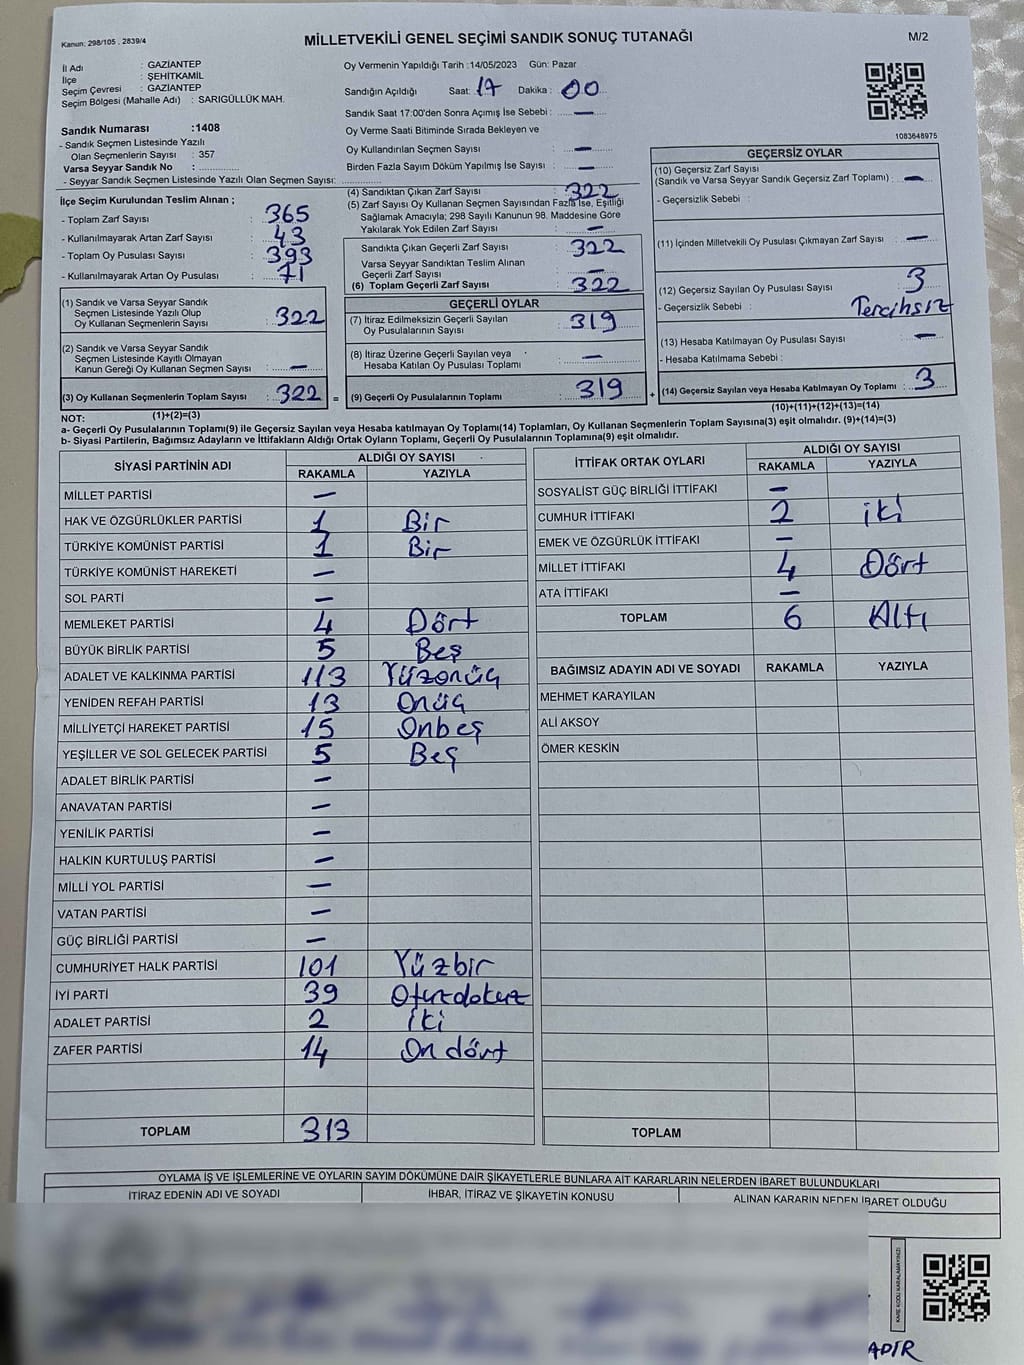 Kanun: 298/105 . 2839/4
MİLLETVEKİLİ GENEL SEÇİMİ SANDIK SONUÇ TUTANAĞI
M/2
İl Adı : GAZİANTEP
İlçe : ŞEHİTKAMİL
Seçim Çevresi : GAZİANTEP
Seçim Bölgesi (Mahalle Adı) : SARIGÜLLÜK MAH.
Sandık Numarası :1408
- Sandık Seçmen Listesinde Yazılı
Olan Seçmenlerin Sayısı : 357
Varsa Seyyar Sandık No :
- Seyyar Sandık Seçmen Listesinde Yazılı Olan Seçmen Sayısı:
Oy Vermenin Yapıldığı Tarih :14/05/2023 Gün: Pazar
Sandığın Açıldığı Saat: 17 Dakika : 00
Sandık Saat 17:00'den Sonra Açımış İse Sebebi : —
Oy Verme Saati Bitiminde Sırada Bekleyen ve
Oy Kullandırılan Seçmen Sayısı : —
Birden Fazla Sayım Döküm Yapılmış İse Sayısı : —
1083648975
İlçe Seçim Kurulundan Teslim Alınan ;
- Toplam Zarf Sayısı : 365
- Kullanılmayarak Artan Zarf Sayısı : 43
- Toplam Oy Pusulası Sayısı : 393
- Kullanılmayarak Artan Oy Pusulası : 71
(1) Sandık ve Varsa Seyyar Sandık
Seçmen Listesinde Yazılı Olup
Oy Kullanan Seçmenlerin Sayısı : 322
(2) Sandık ve Varsa Seyyar Sandık
Seçmen Listesinde Kayıtlı Olmayan
Kanun Gereği Oy Kullanan Seçmen Sayısı : —
(3) Oy Kullanan Seçmenlerin Toplam Sayısı : 322 =
(4) Sandıktan Çıkan Zarf Sayısı : 322
(5) Zarf Sayısı Oy Kullanan Seçmen Sayısından Fazla İse, Eşitliği
Sağlamak Amacıyla; 298 Sayılı Kanunun 98. Maddesine Göre
Yakılarak Yok Edilen Zarf Sayısı : —
Sandıkta Çıkan Geçerli Zarf Sayısı : 322
Varsa Seyyar Sandıktan Teslim Alınan
Geçerli Zarf Sayısı : —
(6) Toplam Geçerli Zarf Sayısı : 322
GEÇERLİ OYLAR
(7) İtiraz Edilmeksizin Geçerli Sayılan
Oy Pusulalarının Sayısı : 319
(8) İtiraz Üzerine Geçerli Sayılan veya
Hesaba Katılan Oy Pusulası Toplamı : —
(9) Geçerli Oy Pusulalarının Toplamı : 319 +
GEÇERSİZ OYLAR
(10) Geçersiz Zarf Sayısı
(Sandık ve Varsa Seyyar Sandık Geçersiz Zarf Toplamı) : —
- Geçersizlik Sebebi :
(11) İçinden Milletvekili Oy Pusulası Çıkmayan Zarf Sayısı : —
(12) Geçersiz Sayılan Oy Pusulası Sayısı : 3
- Geçersizlik Sebebi : Tercihsiz
(13) Hesaba Katılmayan Oy Pusulası Sayısı : —
- Hesaba Katılmama Sebebi :
(14) Geçersiz Sayılan veya Hesaba Katılmayan Oy Toplamı : 3
NOT: (1)+(2)=(3)
(10)+(11)+(12)+(13)=(14)
a- Geçerli Oy Pusulalarının Toplamı(9) ile Geçersiz Sayılan veya Hesaba katılmayan Oy Toplamı(14) Toplamları, Oy Kullanan Seçmenlerin Toplam Sayısına(3) eşit olmalıdır. (9)+(14)=(3)
b- Siyasi Partilerin, Bağımsız Adayların ve İttifakların Aldığı Ortak Oyların Toplamı, Geçerli Oy Pusulalarının Toplamına(9) eşit olmalıdır.
SİYASİ PARTİNİN ADI ALDIĞI OY SAYISI
RAKAMLA YAZIYLA
MİLLET PARTİSİ —
HAK VE ÖZGÜRLÜKLER PARTİSİ 1 Bir
TÜRKİYE KOMÜNİST PARTİSİ 1 Bir
TÜRKİYE KOMÜNİST HAREKETİ —
SOL PARTİ —
MEMLEKET PARTİSİ 4 Dört
BÜYÜK BİRLİK PARTİSİ 5 Beş
ADALET VE KALKINMA PARTİSİ 113 Yüzonüç
YENİDEN REFAH PARTİSİ 13 Onüç
MİLLİYETÇİ HAREKET PARTİSİ 15 Onbeş
YEŞİLLER VE SOL GELECEK PARTİSİ 5 Beş
ADALET BİRLİK PARTİSİ —
ANAVATAN PARTİSİ —
YENİLİK PARTİSİ —
HALKIN KURTULUŞ PARTİSİ —
MİLLİ YOL PARTİSİ —
VATAN PARTİSİ —
GÜÇ BİRLİĞİ PARTİSİ —
CUMHURİYET HALK PARTİSİ 101 Yüzbir
İYİ PARTİ 39 Otuzdokuz
ADALET PARTİSİ 2 iki
ZAFER PARTİSİ 14 On dört
TOPLAM 313
İTTİFAK ORTAK OYLARI ALDIĞI OY SAYISI
RAKAMLA YAZIYLA
SOSYALİST GÜÇ BİRLİĞİ İTTİFAKI —
CUMHUR İTTİFAKI 2 iki
EMEK VE ÖZGÜRLÜK İTTİFAKI —
MİLLET İTTİFAKI 4 Dört
ATA İTTİFAKI —
TOPLAM 6 Altı
BAĞIMSIZ ADAYIN ADI VE SOYADI RAKAMLA YAZIYLA
MEHMET KARAYILAN
ALİ AKSOY
ÖMER KESKİN
TOPLAM
OYLAMA İŞ VE İŞLEMLERİNE VE OYLARIN SAYIM DÖKÜMÜNE DAİR ŞİKAYETLERLE BUNLARA AİT KARARLARIN NELERDEN İBARET BULUNDUKLARI
İTİRAZ EDENİN ADI VE SOYADI İHBAR, İTİRAZ VE ŞİKAYETİN KONUSU ALINAN KARARIN NEDEN İBARET OLDUĞU
KARE KODU KARALAMAYINIZ!